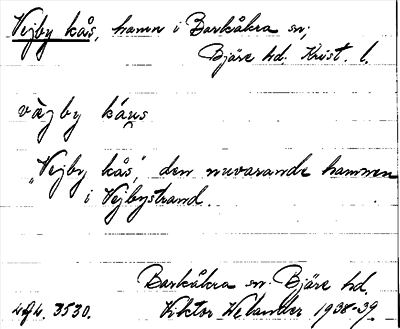 Vejby kås, hamn i Barkåkra sn,
Bjäre hd. Krist. l.
vàgby káus
„Vejby kås", den nuvarande hamnen
i Vejbystrand.
Barkåkra sn. Bjäre hd.
Viktor Welander 1938-39.
3530.